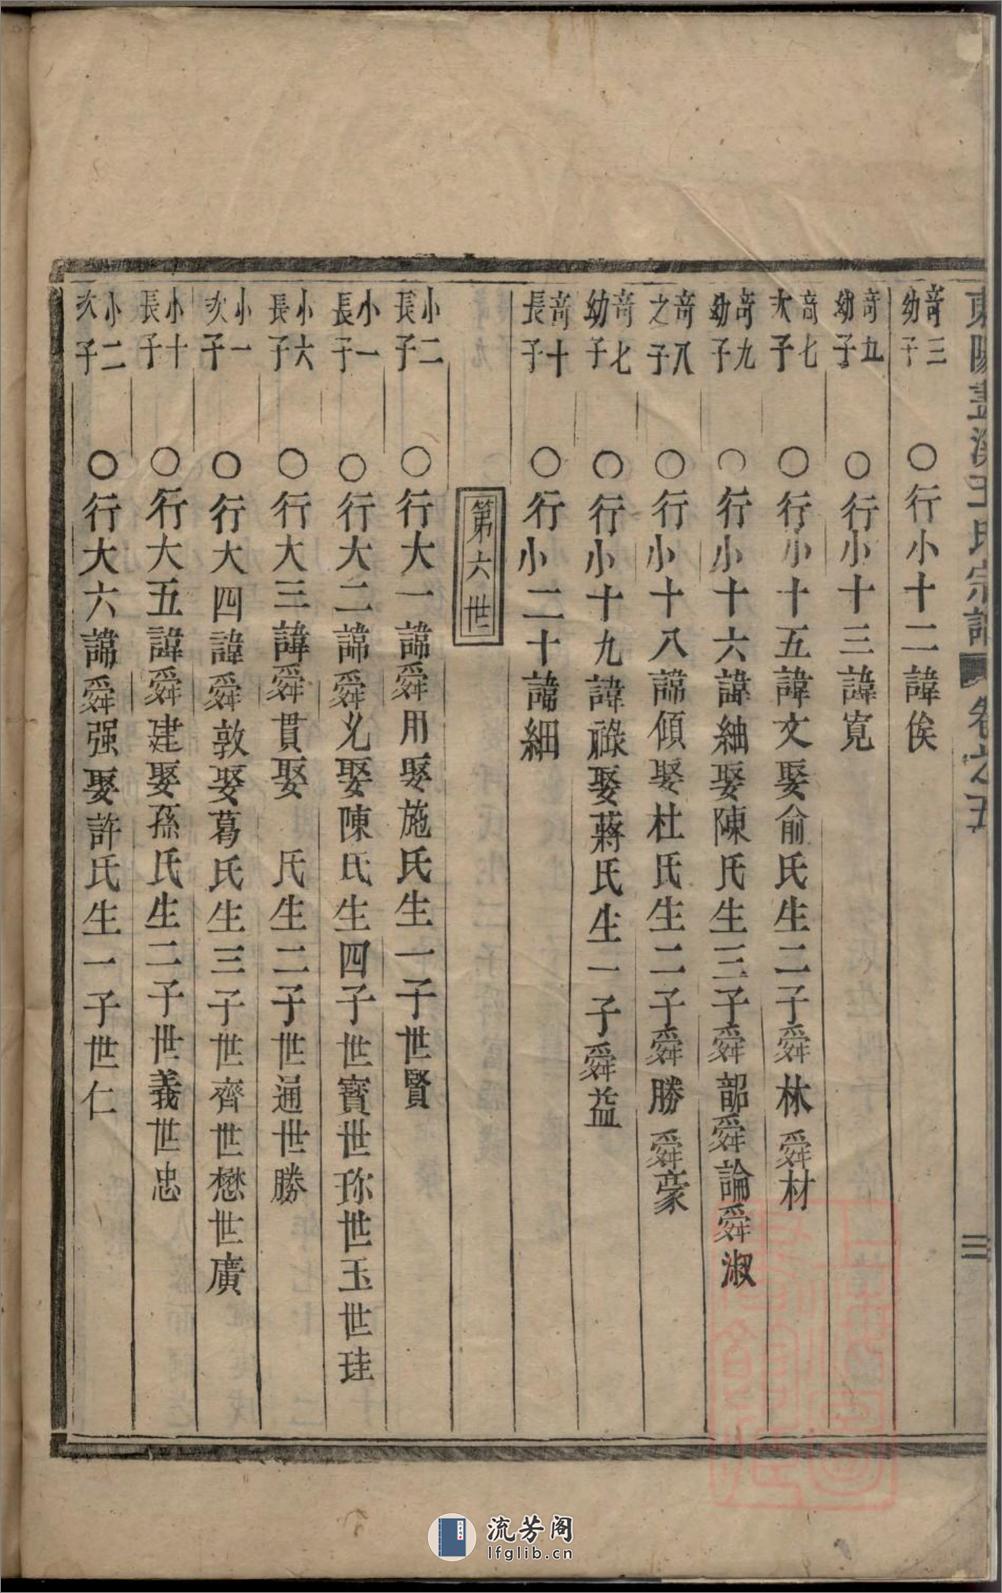 東陽 溪王氏宗譜 卷之五 三
奇三幼子 ○行小十二諱俟
奇五幼子 ○行小十三諱寛
奇七次子 ○行小十五諱文娶俞氏生二子舜林舜材
奇九幼子 ○行小十六諱紬娶陳氏生三子舜韶舜論舜淑
奇八之子 ○行小十八諱傾娶杜氏生二子舜勝舜豪
奇七幼子 ○行小十九諱祿娶蔣氏生一子舜益
奇十長子 ○行小二十諱細
第六世
小二長子 ○行大一諱舜用娶施氏生一子世賢
小一長子 ○行大二諱舜 娶陳氏生四子世寳世珎世玉世珪
小六長子 ○行大三諱舜貫娶 氏生二子世通世勝
小一次子 ○行大四諱舜敦娶葛氏生三子世齊世懋世廣
小十長子 ○行大五諱舜建娶孫氏生二子世義世忠
小二次子 ○行大六諱舜强娶許氏生一子世仁
流芳阁
lfglib.cn